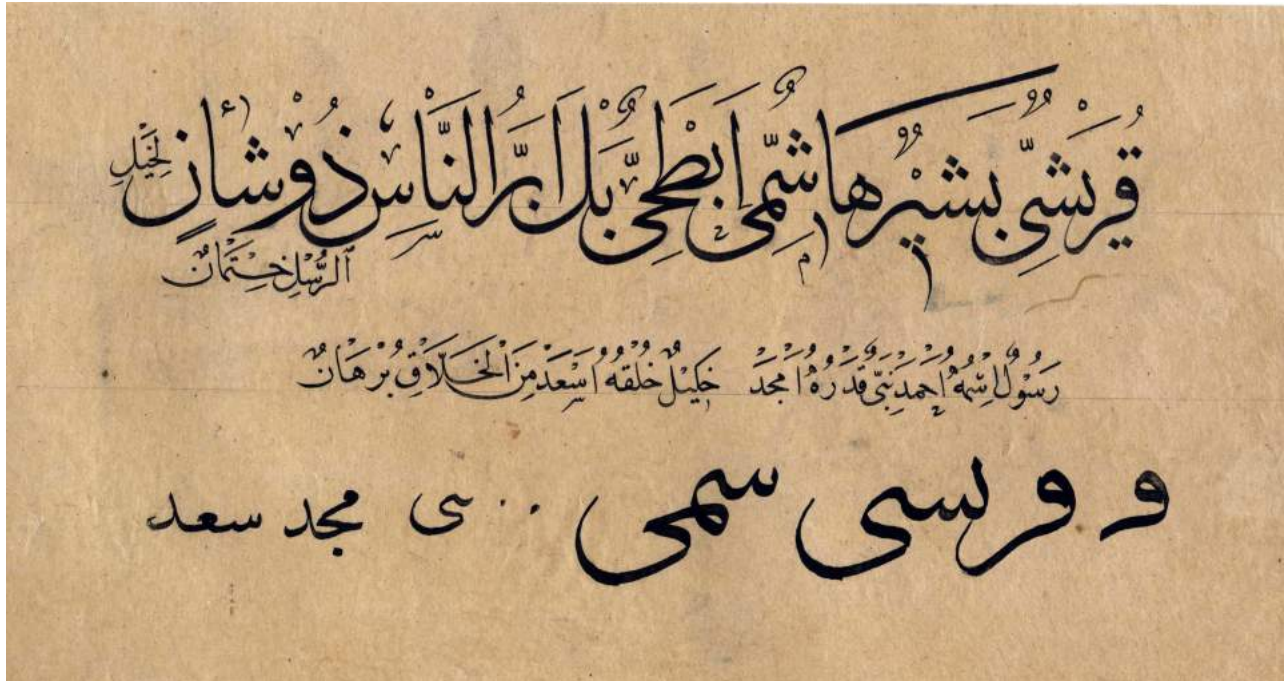 قُرَيْشِيٌّ بَشِيْرٌ هَاشِمِيٌّ اَبْطَحِيٌّ بَلْ اَبَرُّ النَّاسِ ذُوْشَأنٍ
الرُّسْلِ خِتْمَانٌ
رَسُوْلٌ اِسْمُهُ اَحْمَدْ نَبِيٌّ قَدْرُهُ اَمْجَدْ خُلْقُهُ اَسْعَدْ مِنَ الْخَلَّاقِ بُرْهَانٌ
و و ر سى سمى سى مجد سعد